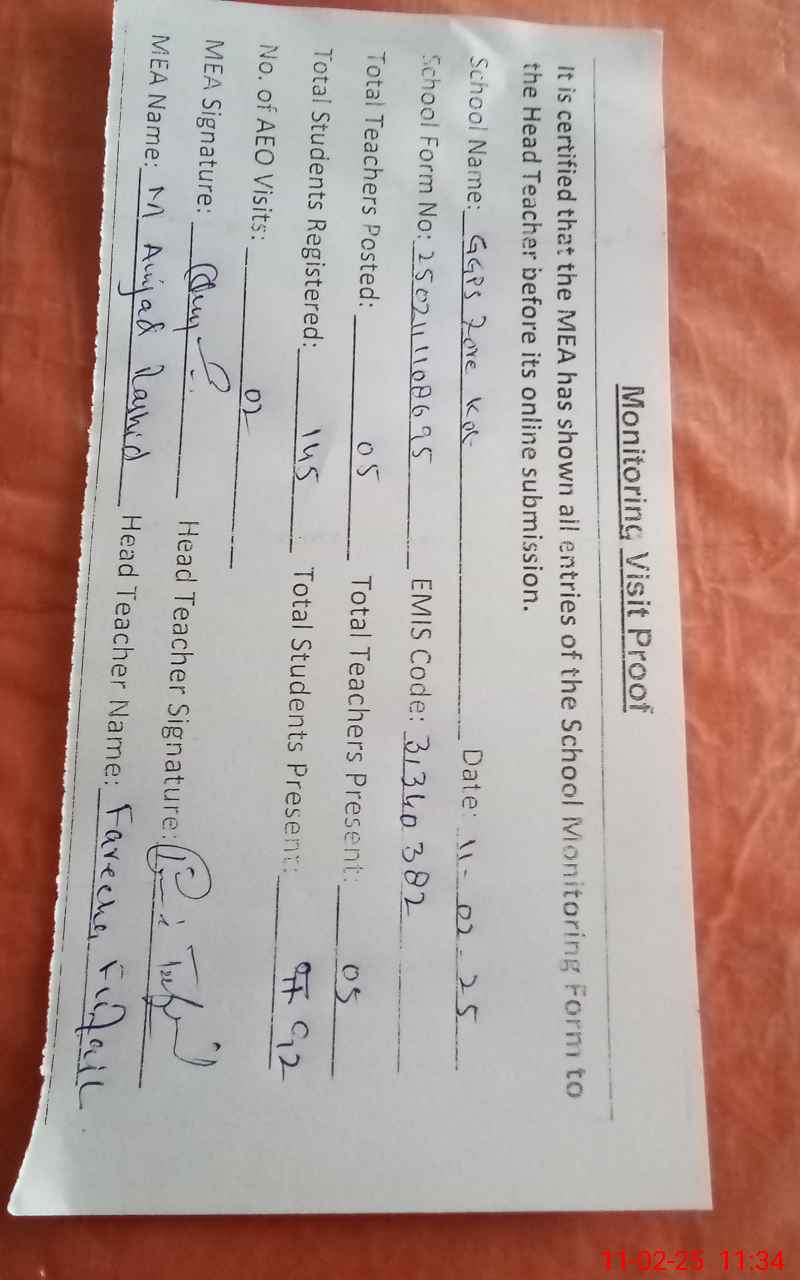 Monitoring Visit Proof
It is certified that the MEA has shown all entries of the School Monitoring Form to
the Head Teacher before its online submission.
School Name: GGPS Zore Kot Date: 11-02-25
School Form No: 250211108695 EMIS Code: 31340382
Total Teachers Posted: 05 Total Teachers Present: 05
Total Students Registered: 145 Total Students Present: 92
No. of AEO Visits: 02
MEA Signature: Head Teacher Signature:
MEA Name: M Amjad Rashid Head Teacher Name: Fareeha
11-02-25 11:34